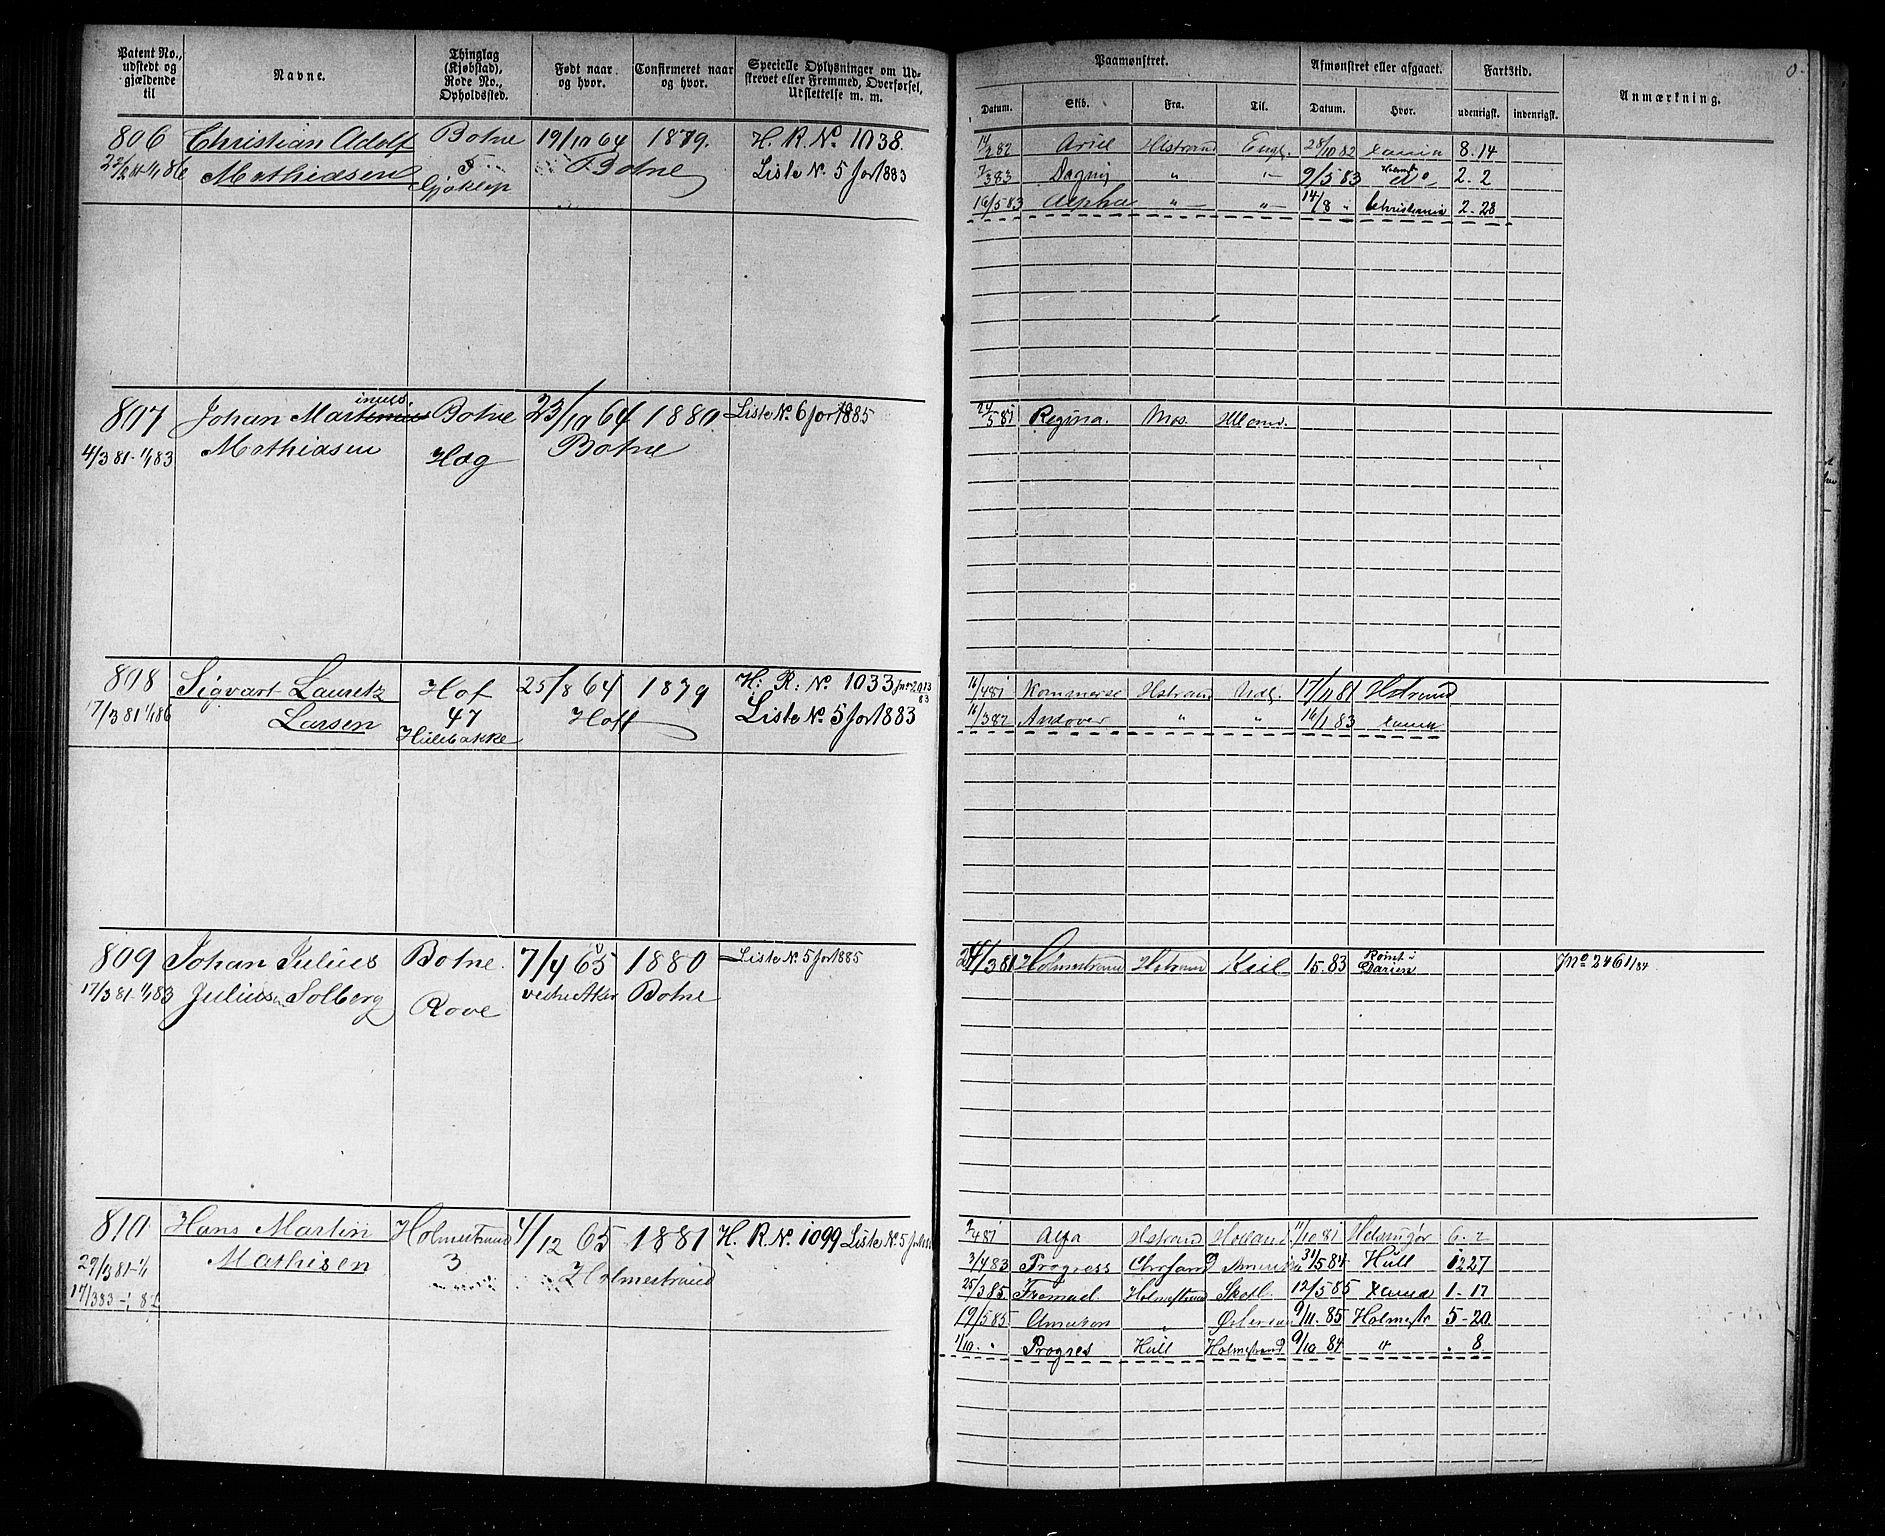 Patent No., udstedt og gjældende til
Navne.
Thinglag (Kjøbstad), Rode No., Opholdssted.
Født naar og hvor.
Confirmeret naar og hvor.
Specielle Oplysninger om Udskrevet eller Fremmed, Overførsel, Utslettelse m. m.
Paamønstret.
Afmønstret eller afgaaet.
Fartstid.
Anmærkning.
Datum. Skib. Fra. Til. Datum. Hvor. udenrigsk. indenrigsk.
806 Christian Adolf Botne 19/10 64 1879. H. R. No. 1038.
Mathiasen 5 Botne Liste No. 5 for 1883
Gjøklep
82 Ariel Hstrand Engl. 28/10 82 8.14
7/3 83 Dagny " " 9/5 83 do 2.2
16/5 83 Alpha " " 14/8 " Christiania 2-28
807 Johan Martinius Botne 23/10 64 1880. Liste No. 6 for 1885
4/3 81-1/1 83 Mathiasen Høg Botne
24/5 81 Regina. Mos.
808 Sigvart Lauretz Hof 25/8 64 1879 H: R: No. 1033
17/3 81 1/1 86 Larsen 47 Hoff Liste No. 5 for 1883
Hillebakke
16/4 81 Kommerse Hstrand Udl. 17/11 81 Hstrand
16/3 82 Andover " " 16/1 83
809 Johan Julius Botne. 7/4 65 1880 Liste No. 5 for 1885
17/3 81-1/1 83 Julius. Solberg Rove vestre Aker Botne
/3 81 Holmestrand Hstrand Kiil 15.83 Rømt i Darien Jno 2461/84
810 Hans Martin Holmestrand 4/12 65 1881 H. R. No. 1099 Liste No. 5
29/3 81-1/1 Mathisen 3 Holmestrand
17/3 83-
2/4 81 Alfa Hstrand Holland 11/10 81 Helsingør 6.2
3/4 83 Progress Chrsand Amerika 31/5 84 Hull 1227
25/3 85 Fremad. Holmestrand Skotl. 12/5 85 1-17
19/5 85 Amazon " 9/11.85 Holmestr 5-20
1/10. " Progres Hull Holmestrand 9/10 84 " . 8